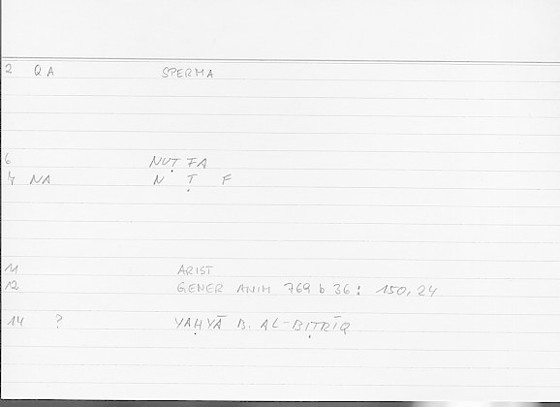 2 QA SPERMA
6 NUṬFA
7 NA N Ṭ F
11 ARIST
12 GENER ANIM 769 b 36: 150,24
14 ? YAḤYĀ B. AL-BIṬRĪQ